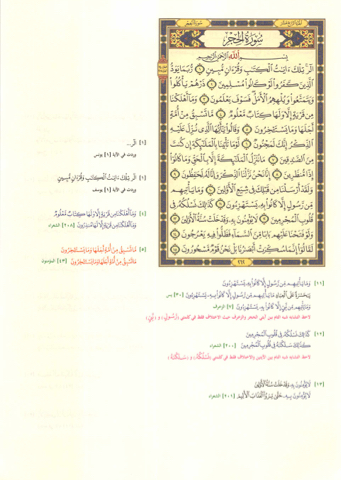 سُورَةُ الحِجْرِ
بِسْمِ اللَّهِ الرَّحْمَٰنِ الرَّحِيمِ
الٓر تِلْكَ ءَايَٰتُ ٱلْكِتَٰبِ وَقُرْءَانٍ مُّبِينٍ ١ رُّبَمَا يَوَدُّ
ٱلَّذِينَ كَفَرُوا۟ لَوْ كَانُوا۟ مُسْلِمِينَ ٢ ذَرْهُمْ يَأْكُلُوا۟
وَيَتَمَتَّعُوا۟ وَيُلْهِهِمُ ٱلْأَمَلُ فَسَوْفَ يَعْلَمُونَ ٣ وَمَآ أَهْلَكْنَا
مِن قَرْيَةٍ إِلَّا وَلَهَا كِتَابٌ مَّعْلُومٌ ٤ مَّا تَسْبِقُ مِنْ أُمَّةٍ
أَجَلَهَا وَمَا يَسْتَـْٔخِرُونَ ٥ وَقَالُوا۟ يَٰٓأَيُّهَا ٱلَّذِى نُزِّلَ عَلَيْهِ
ٱلذِّكْرُ إِنَّكَ لَمَجْنُونٌ ٦ لَّوْ مَا تَأْتِينَا بِٱلْمَلَٰٓئِكَةِ إِن كُنتَ
مِنَ ٱلصَّٰدِقِينَ ٧ مَا نُنَزِّلُ ٱلْمَلَٰٓئِكَةَ إِلَّا بِٱلْحَقِّ وَمَا كَانُوٓا۟
إِذًا مُّنظَرِينَ ٨ إِنَّا نَحْنُ نَزَّلْنَا ٱلذِّكْرَ وَإِنَّا لَهُۥ لَحَٰفِظُونَ ٩
وَلَقَدْ أَرْسَلْنَا مِن قَبْلِكَ فِى شِيَعِ ٱلْأَوَّلِينَ ١٠ وَمَا يَأْتِيهِم
مِّن رَّسُولٍ إِلَّا كَانُوا۟ بِهِۦ يَسْتَهْزِءُونَ ١١ كَذَٰلِكَ نَسْلُكُهُۥ فِى
قُلُوبِ ٱلْمُجْرِمِينَ ١٢ لَا يُؤْمِنُونَ بِهِۦ وَقَدْ خَلَتْ سُنَّةُ ٱلْأَوَّلِينَ ١٣
وَلَوْ فَتَحْنَا عَلَيْهِم بَابًا مِّنَ ٱلسَّمَآءِ فَظَلُّوا۟ فِيهِ يَعْرُجُونَ ١٤
لَقَالُوٓا۟ إِنَّمَا سُكِّرَتْ أَبْصَٰرُنَا بَلْ نَحْنُ قَوْمٌ مَّسْحُورُونَ ١٥
٢٦٢
[١] الٓر...
وردت في الآية [١] يونس
[١] الٓر تِلْكَ ءَايَٰتُ ٱلْكِتَٰبِ وَقُرْءَانٍ مُّبِينٍ
وردت في الآية [١] يوسف
[٤] وَمَآ أَهْلَكْنَا مِن قَرْيَةٍ إِلَّا وَلَهَا كِتَابٌ مَّعْلُومٌ
وَمَآ أَهْلَكْنَا مِن قَرْيَةٍ إِلَّا لَهَا مُنذِرُونَ [٢٠٨] الشعراء
[٥] مَّا تَسْبِقُ مِنْ أُمَّةٍ أَجَلَهَا وَمَا يَسْتَـْٔخِرُونَ
مَا تَسْبِقُ مِنْ أُمَّةٍ أَجَلَهَا وَمَا يَسْتَـْٔخِرُونَ [٤٣] المؤمنون
[١١] وَمَا يَأْتِيهِم مِّن رَّسُولٍ إِلَّا كَانُوا۟ بِهِۦ يَسْتَهْزِءُونَ
يَٰحَسْرَةً عَلَى ٱلْعِبَادِ مَا يَأْتِيهِم مِّن رَّسُولٍ إِلَّا كَانُوا۟ بِهِۦ يَسْتَهْزِءُونَ [٣٠] يس
وَمَا يَأْتِيهِم مِّن نَّبِىٍّ إِلَّا كَانُوا۟ بِهِۦ يَسْتَهْزِءُونَ [٧] الزخرف
[١٢] كَذَٰلِكَ نَسْلُكُهُۥ فِى قُلُوبِ ٱلْمُجْرِمِينَ
كَذَٰلِكَ سَلَكْنَٰهُ فِى قُلُوبِ ٱلْمُجْرِمِينَ [٢٠٠] الشعراء
[١٣] لَا يُؤْمِنُونَ بِهِۦ وَقَدْ خَلَتْ سُنَّةُ ٱلْأَوَّلِينَ
لَا يُؤْمِنُونَ بِهِۦ حَتَّىٰ يَرَوُا۟ ٱلْعَذَابَ ٱلْأَلِيمَ [٢٠١] الشعراء